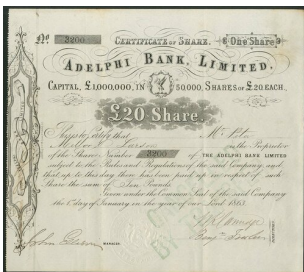 No. 3200 CERTIFICATE OF SHARE. One Share
ADELPHI BANK, LIMITED.
CAPITAL, £1,000,000, IN 50,000, SHARES OF £20 EACH.
£20 Share.
This is to certify that Mr.
is the Proprietor
of the Share Number 3200 OF THE ADELPHI BANK LIMITED
subject to the Rules and Regulations of the said Company, and
that up to this day there has been paid up in respect of such
Share the sum of Ten Pounds.
Given under the Common Seal of the said Company
the day of January in the year of our Lord 1863.
MANAGER.